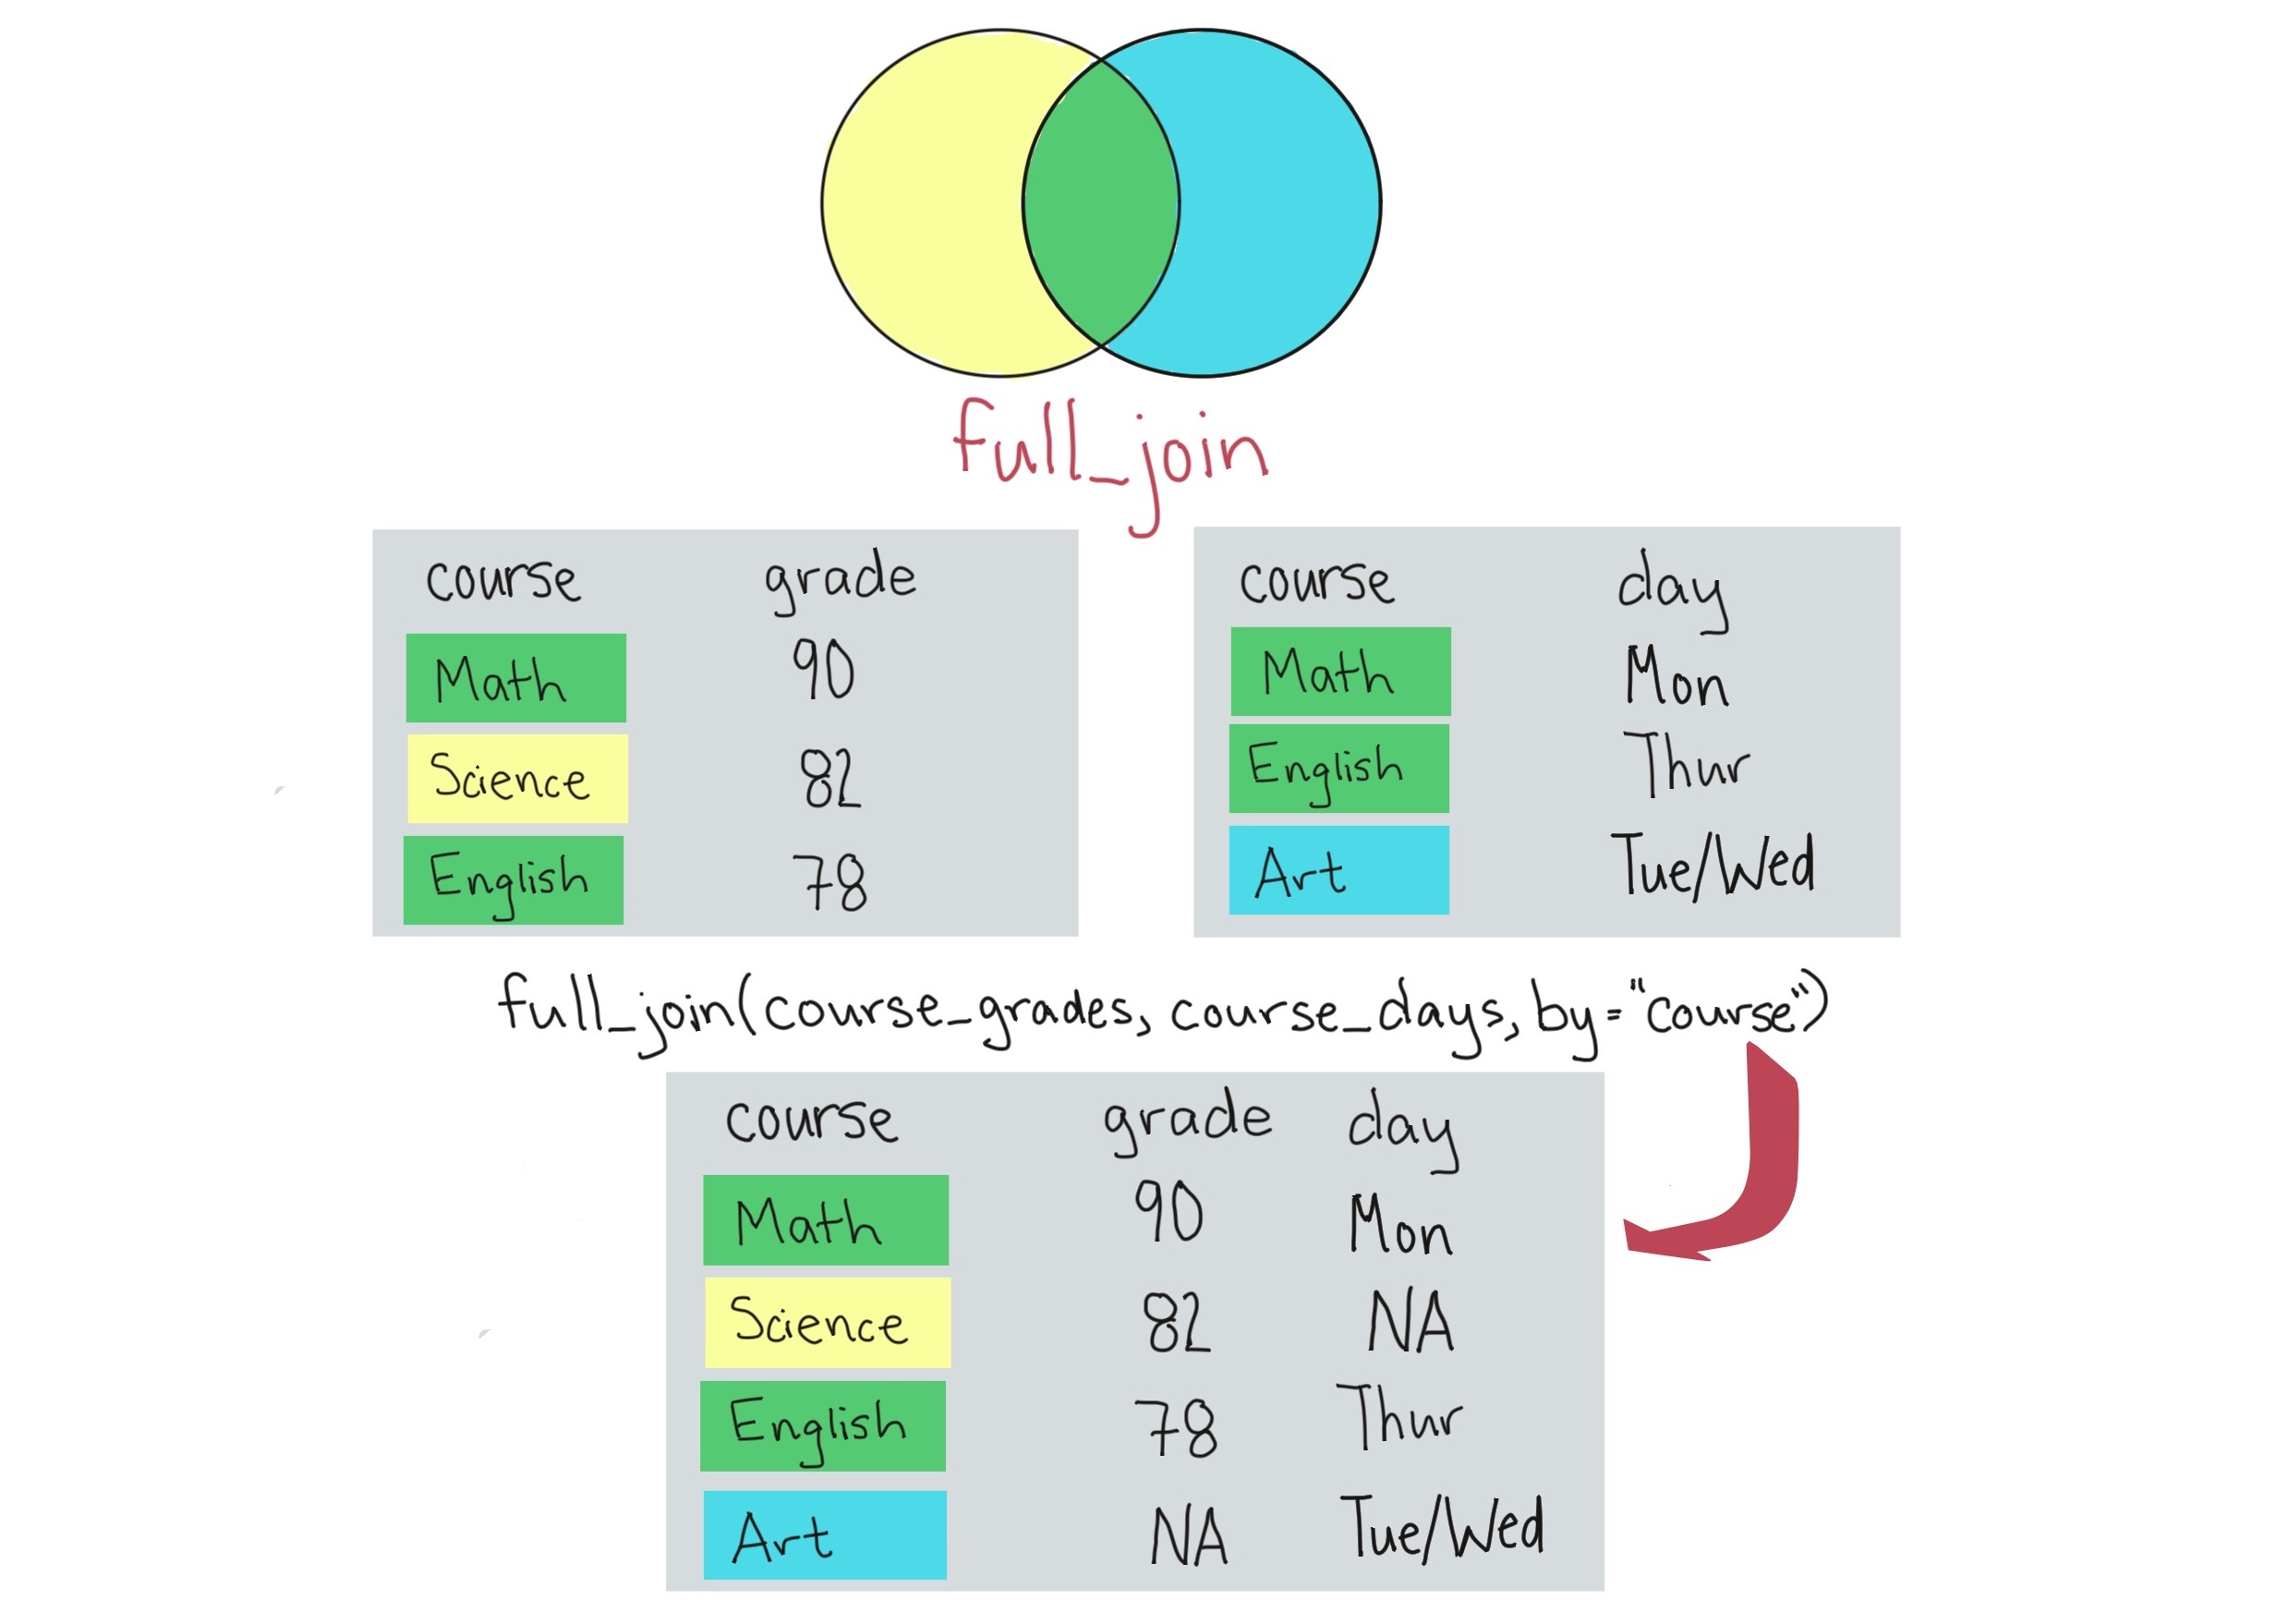 full_join
course grade
Math 90
Science 82
English 78
course day
Math Mon
English Thur
Art Tue/Wed
full_join(course_grades, course_days, by="course")
course grade day
Math 90 Mon
Science 82 NA
English 78 Thur
Art NA Tue/Wed